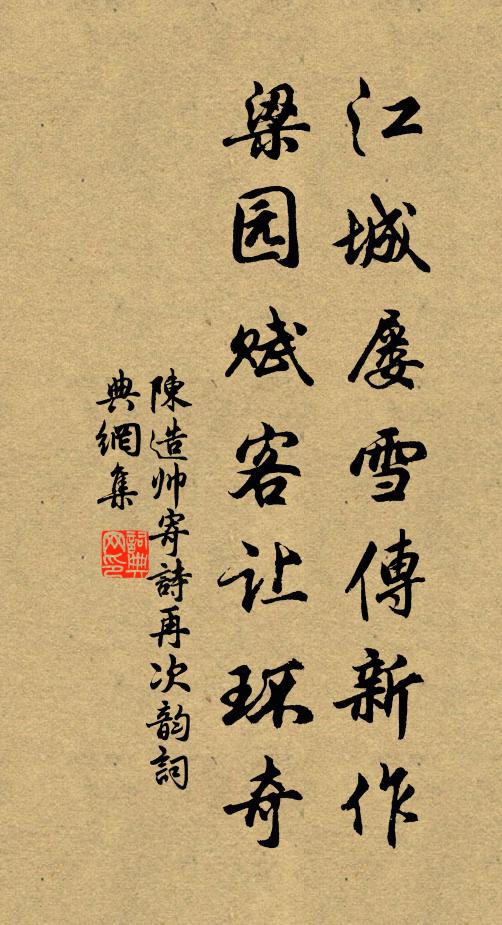 江城屡雪傳新作
梁园赋客让环奇
陳造帅寄詩再次韵詞
典網集
詞典
网印